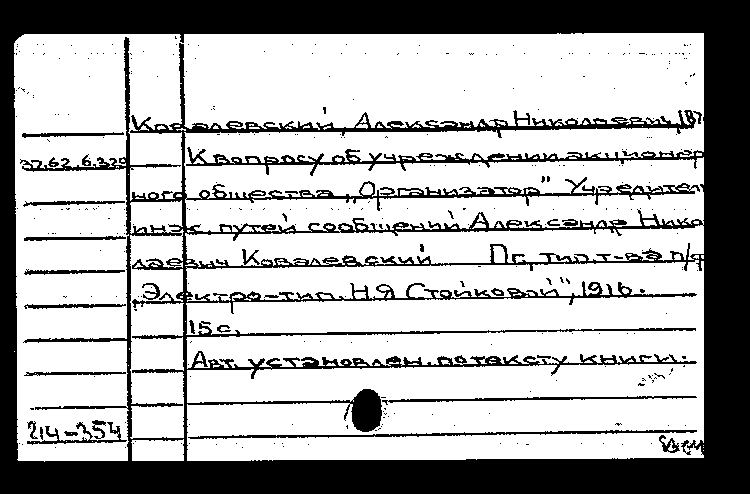 Ковалевский, Александр Николаевич, 187
37.62.6.329 К вопросу об учреждении акционер
ного общества „Организатор" Учредитель
инж. путей сообщений Александр Нико
лаевич Ковалевский Пг, тип. т-ва п/ф
„Электро-тип. Н.Я Стойковой", 1916.
15 с,
Авт. установлен. по тексту книги.
214-354